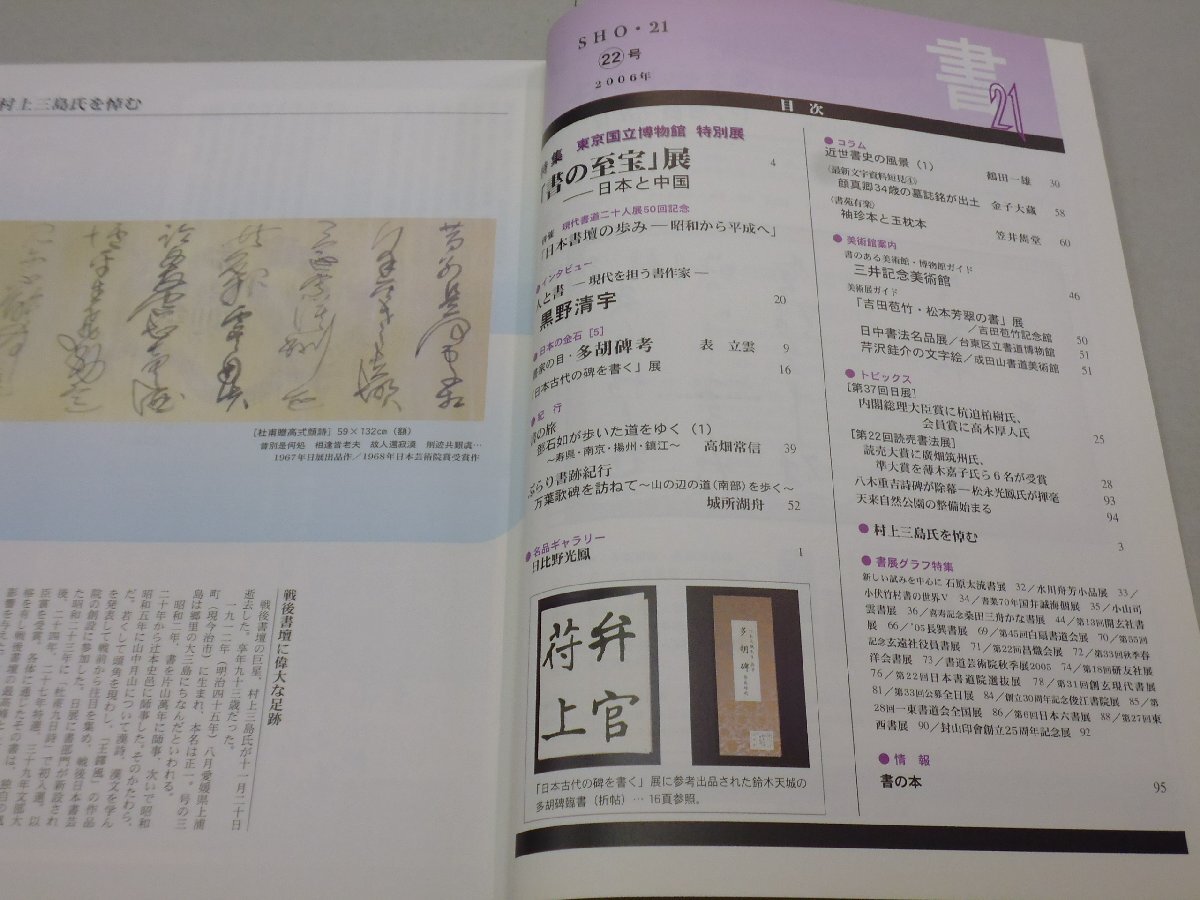 村上三島氏を悼む
［杜甫贈高式顔詩］59×132㎝（額）
昔別是何処 相逢皆老夫 故人還寂漠 削迹共艱虞…
1967年日展出品作／1968年日本芸術院賞受賞作
戦後書壇に偉大な足跡
戦後書壇の巨星、村上三島氏が十一月二十日
逝去した。享年九十三歳だった。
一九一二年（明治四十五年）八月愛媛県上浦
町（現今治市）に生まれ、本名は正一。号の三
島は郷里の大三島にちなんだといわれる。
昭和二年、書を片山萬年に師事、次いで昭和
二十年から辻本史邑に師事した。そのかたわら、
昭和五年に山中月山について漢詩、漢文を学ん
だ。若くして頭角を現わし、「王鐸風」の作品
を発表して戦前から注目を集め、戦後日本書芸
院の創設に参加した。日展に書部門が新設され
た昭和二十三年に「杜甫九日詩」で初入選。以
後、二十四年、二十七年特選、三十九年文部大
臣賞を受賞。各体に通じたその書は、独自の風
SHO・21
22号
2006年
書
21
目 次
特集 東京国立博物館 特別展
「書の至宝」展 4
──日本と中国
特集 現代書道二十人展50回記念
「日本書壇の歩み―昭和から平成へ」
●インタビュー
人と書 ―現代を担う書作家―
黒野清宇 20
●日本の金石［5］
書家の目・多胡碑考 表 立雲 9
「日本古代の碑を書く」展 16
●紀 行
書の旅
鄧石如が歩いた道をゆく（1） 高畑常信 39
～寿県・南京・揚州・鎮江～
ぶらり書跡紀行
万葉歌碑を訪ねて～山の辺の道（南部）を歩く～
城所湖舟 52
●名品ギャラリー
日比野光鳳 1
弁官
符上
多胡碑
「日本古代の碑を書く」展に参考出品された鈴木天城の
多胡碑臨書（折帖）… 16頁参照。
●コラム
近世書史の風景（1） 鶴田一雄 30
〈最新文字資料短見④〉
顔真卿34歳の墓誌銘が出土 金子大蔵 58
〈書苑有楽〉
袖珍本と玉枕本 笠井雋堂 60
●美術館案内
書のある美術館・博物館ガイド
三井記念美術館 46
美術展ガイド
「吉田苞竹・松本芳翠の書」展
／吉田苞竹記念館 50
日中書法名品展／台東区立書道博物館 51
芹沢銈介の文字絵／成田山書道美術館 51
●トピックス
［第37回日展］
内閣総理大臣賞に杭迫柏樹氏、
会員賞に高木厚人氏 25
［第22回読売書法展］
読売大賞に廣畑筑州氏、
準大賞を薄木嘉子氏ら6名が受賞 28
八木重吉詩碑が除幕―松永光鳳氏が揮毫 93
天来自然公園の整備始まる 94
●村上三島氏を悼む 3
●書展グラフ特集
新しい試みを中心に 石原太流書展 32／水川舟芳小品展 33／
小伏竹村書の世界Ⅴ 34／書業70年国井誠海個展 35／小山司
雲書展 36／喜寿記念桑田三舟かな書展 44／第13回開玄社書
展 66／'05長興書展 69／第45回白扇書道会展 70／第55回
記念玄遠社役員書展 71／第22回昌熾会展 72／第33回秋季春
洋会書展 73／書道芸術院秋季展2005 74／第18回研友社展
76／第22回日本書道院選抜展 78／第31回創玄現代書展
81／第33回公募全日展 84／創立30周年記念俊江書院展 85／第
28回一東書道会全国展 86／第6回日本六書展 88／第27回東
西書展 90／封山印會創立25周年記念展 92
●情 報
書の本 95